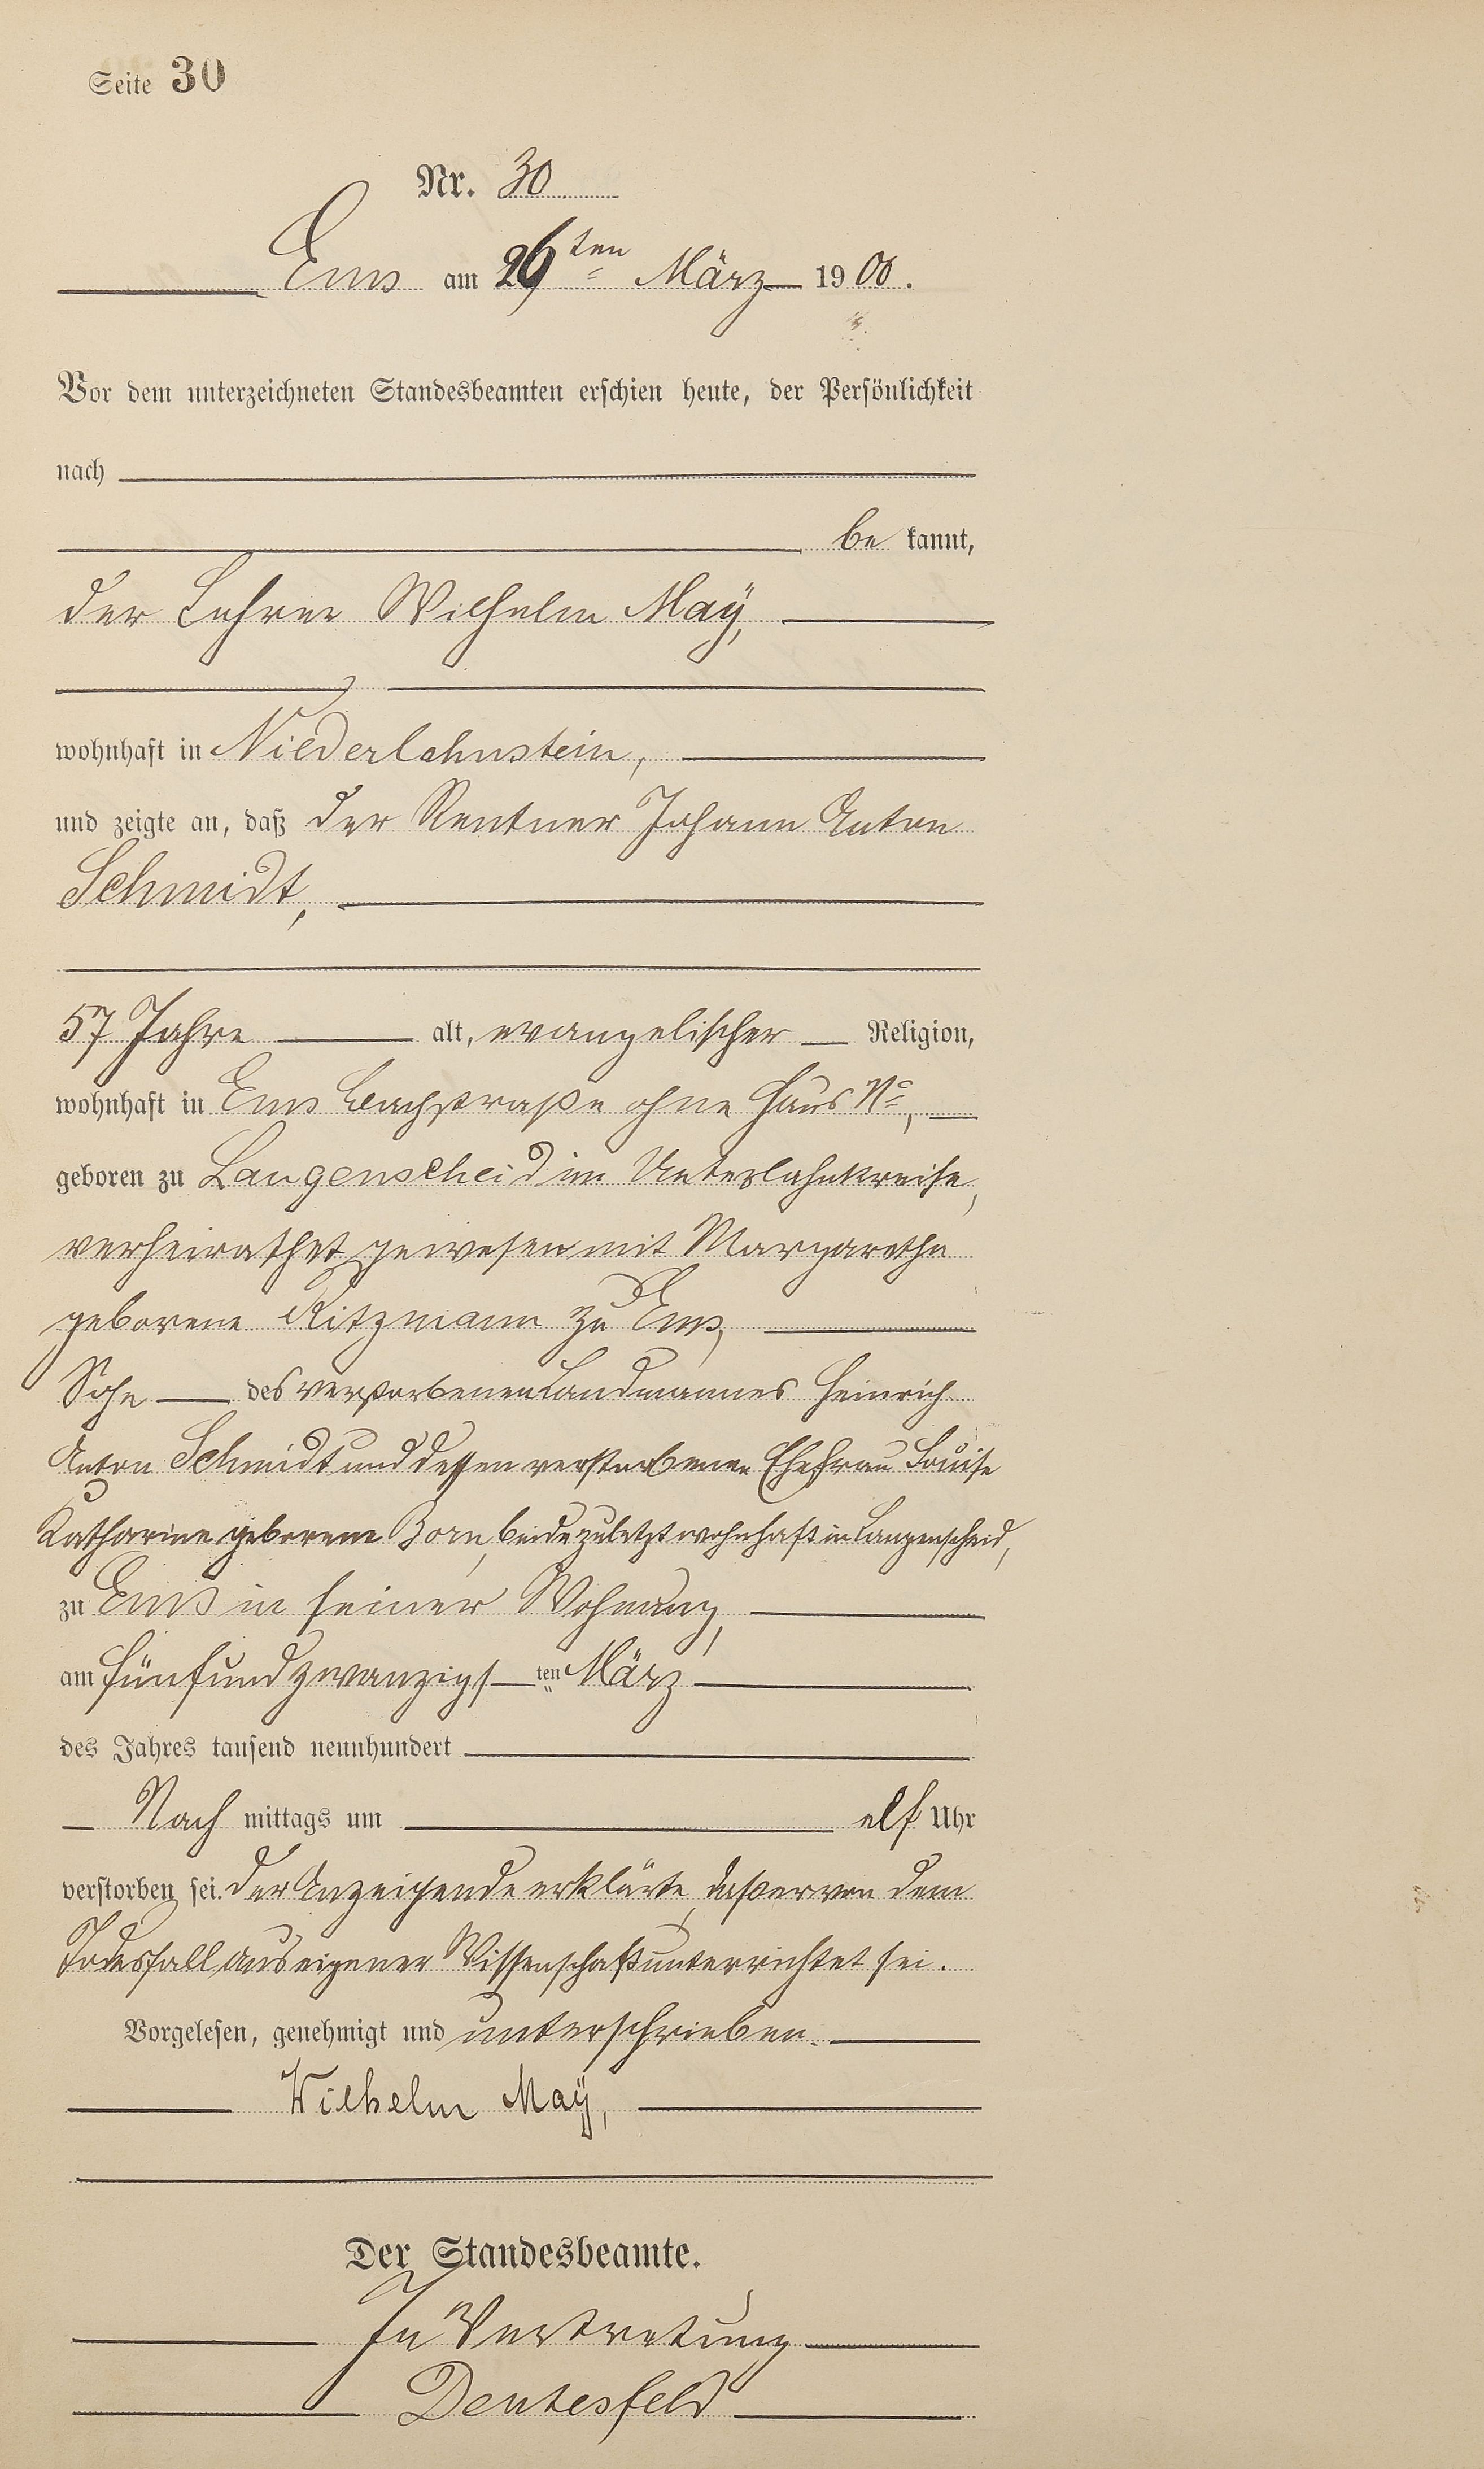 Seite 30
Nr. 30
Ems am 26ten März 1900.
Vor dem unterzeichneten Standesbeamten erschien heute, der Persönlichkeit
nach
be kannt,
der Lehrer Wilhelm Maÿ,
wohnhaft in Niederlahnstein,
und zeigte an, daß der Rentner Johann Anton
Schmidt,
57 Jahre alt, evangelischer Religion,
wohnhaft in Ems Bachstraße ohne Haus No,
geboren zu Langenscheid im Unterlahnkreise,
verheirathet gewesen mit Margarethe
geborene Ritzmann zu Ems,
Sohn des verstorbenen Landmannes Heinrich
Anton Schmidt und dessen verstorbenen Ehefrau Louise
Katharine geborene Born, beide zuletzt wohnhaft in Langenscheid,
zu Ems in seiner Wohnung,
am fünfundzwanzigsten März
des Jahres tausend neunhundert
Nach mittags um elf Uhr
verstorben sei. Der Anzeigende erklärte, daß er von dem
Todesfall aus eigener Wissenschaft unterrichtet sei.
Vorgelesen, genehmigt und unterschrieben.
Wilhelm Maÿ,
Der Standesbeamte.
In Vertretung